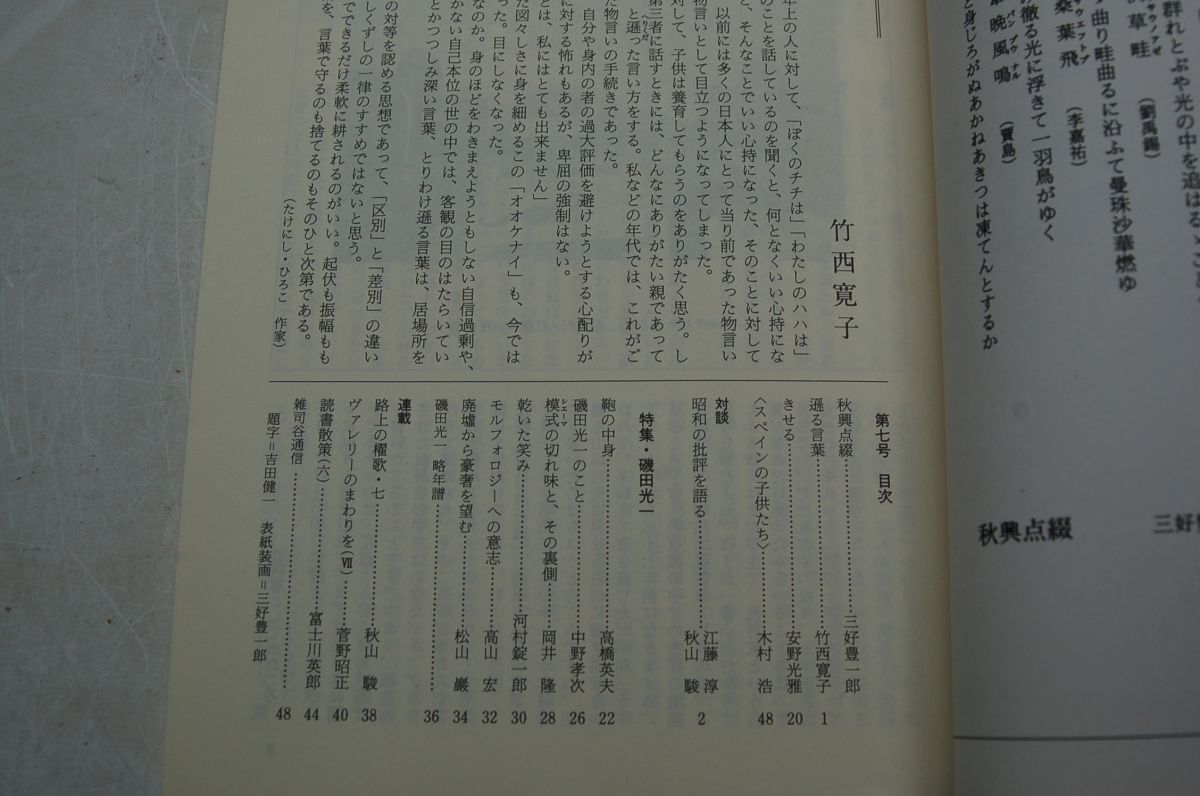 群れとぶや光の中を追はる
草畦 (劉禹錫)
曲り畦曲るに沿ふて曼珠沙華燃ゆ
桑葉飛 (李嘉祐)
徹る光に浮きて一羽鳥がゆく
晩風鳴 (賈島)
と身じろがぬあかねあきつは凍てんとするか
秋興点綴
竹西寛子
年上の人に対して、「ぼくのチチは」「わたしのハハは」
のことを話しているのを聞くと、何となくいい心持にな
と、そんなことでいい心持になった、そのことに対して
以前には多くの日本人にとって当り前であった物言い
物言いとして目立つようになってしまった。
対して、子供は養育してもらうのをありがたく思う。し
第三者に話すときには、どんなにありがたい親であって
と遜った言い方をする。私などの年代では、これがご
た物言いの手続きであった。
自分や身内の者の過大評価を避けようとする心配りが
に対する怖れもあるが、卑屈の強制はない。
とは、私にはとても出来ません」
た図々しさに身を細めるこの「オオケナイ」も、今では
った。目にしなくなった。
なのか。身のほどをわきまえようともしない自信過剰や、
かない自己本位の世の中では、客観の目のはたらいてい
とかつつしみ深い言葉、とりわけ遜る言葉は、居場所を
の対等を認める思想であって、「区別」と「差別」の違い
しくずしの一律のすすめではないと思う。
でできるだけ柔軟に耕されるのがいい。起伏も振幅もも
を、言葉で守るのも捨てるのもそのひと次第である。
(たけにし・ひろこ 作家)
第七号 目次
秋興点綴……三好豊一郎
遜る言葉……竹西寛子 1
きせる……安野光雅 20
〈スペインの子供たち〉……木村 浩 48
対談
昭和の批評を語る……江藤 淳 秋山 駿 2
特集・磯田光一
鞄の中身……高橋英夫 22
磯田光一のこと……中野孝次 26
模式の切れ味と、その裏側……岡井 隆 28
乾いた笑み……河村錠一郎 30
モルフォロジーへの意志……高山 宏 32
廃墟から豪奢を望む……松山 巖 34
磯田光一 略年譜……36
連載
路上の櫂歌・七……秋山 駿 38
ヴァレリーのまわりを(Ⅶ)……菅野昭正 40
読書散策(六)……富士川英郎 44
雑司谷通信……48
題字＝吉田健一 表紙装画＝三好豊一郎